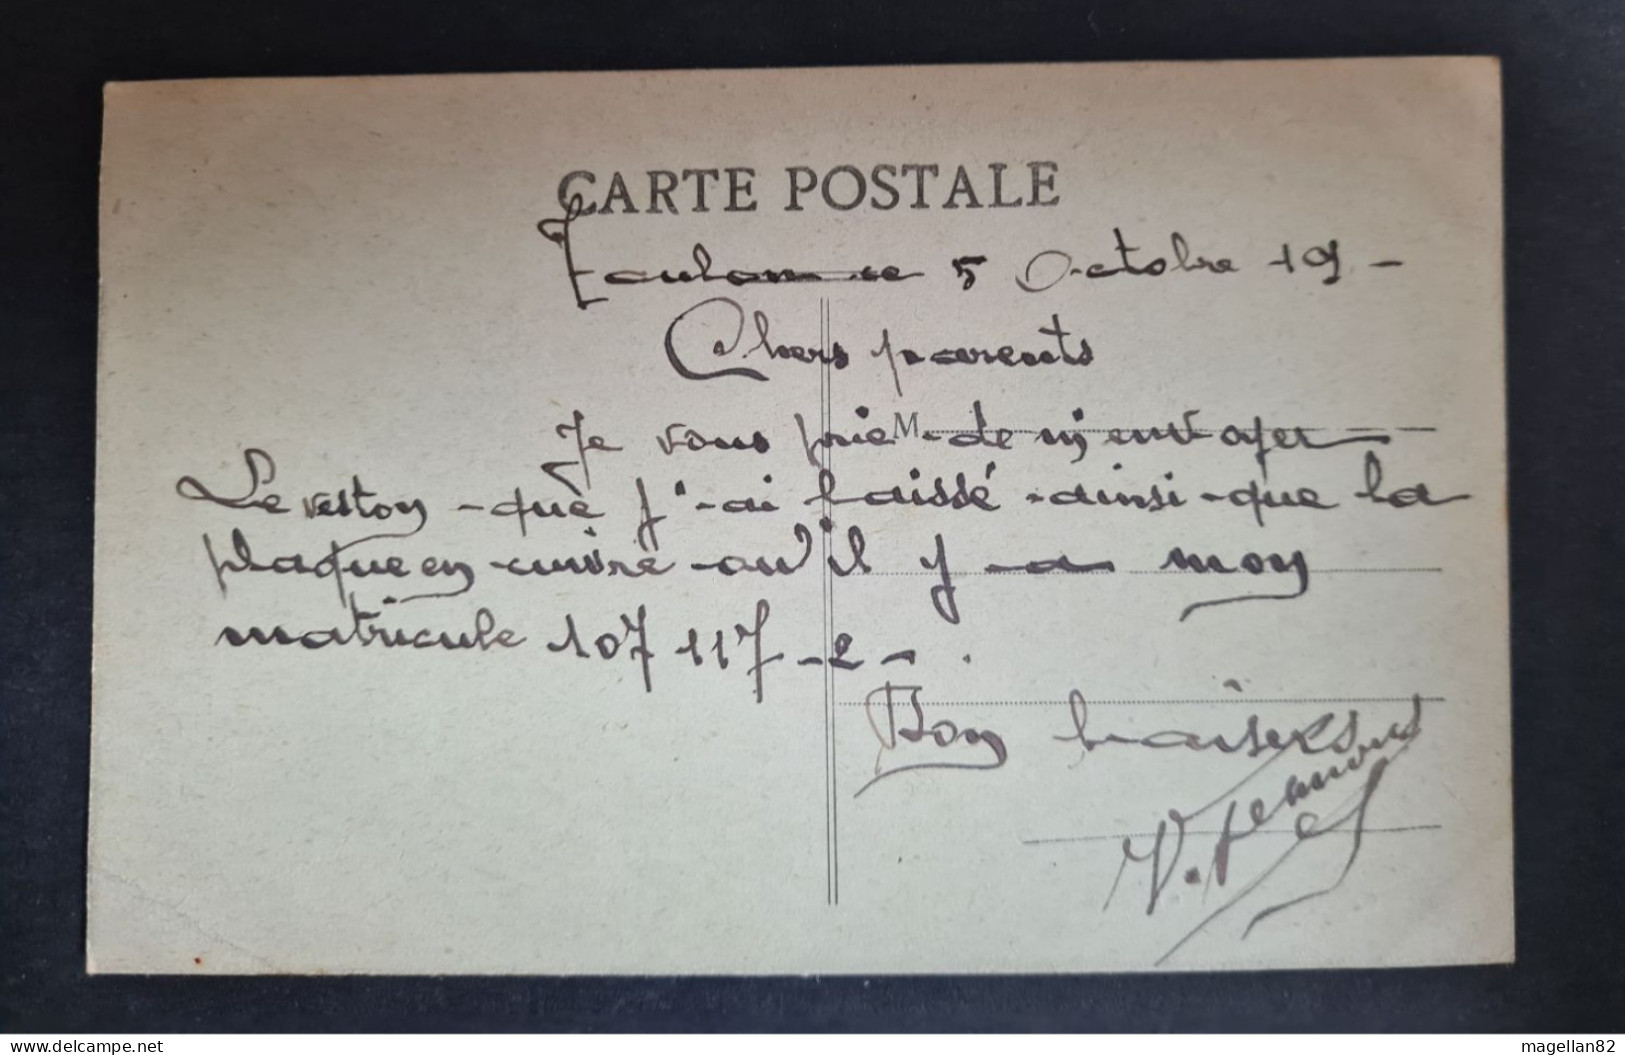 CARTE POSTALE
Toulon le 5 Octobre 19 -
Chers parents
M
Je vous prie de m'envoyer
Le veston que j'ai laissé ainsi que la
plaque en cuivre qu'il y a mon
matricule 107 117 - 2 -.
Bon baisers
V.
delcampe.net
magellan82